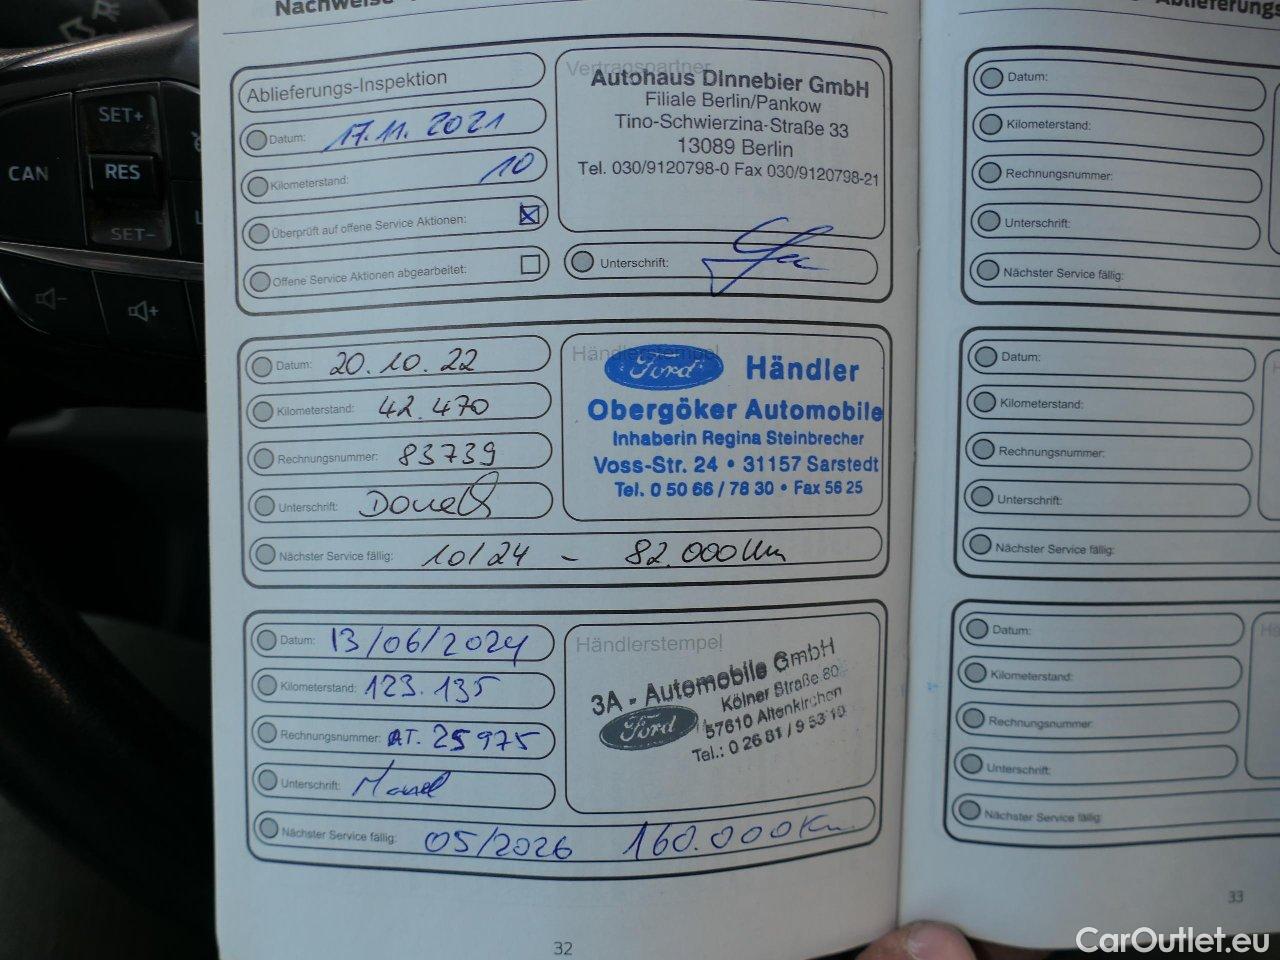 Nachweise
SET+
CAN
RES
SET−
Ablieferungs-Inspektion
Datum: 17.11.2021
Kilometerstand: 10
Überprüft auf offene Service Aktionen:
Offene Service Aktionen abgearbeitet:
Vertragspartner
Autohaus Dinnebier GmbH
Filiale Berlin/Pankow
Tino-Schwierzina-Straße 33
13089 Berlin
Tel. 030/9120798-0 Fax 030/9120798-21
Unterschrift:
Datum: 20.10.22
Kilometerstand: 42.470
Rechnungsnummer: 83739
Unterschrift:
Nächster Service fällig: 10/24 – 82.000Km
Händlerstempel
Ford Händler
Obergöker Automobile
Inhaberin Regina Steinbrecher
Voss-Str. 24 • 31157 Sarstedt
Tel. 0 50 66 / 78 30 • Fax 56 25
Datum: 13/06/2024
Kilometerstand: 123.135
Rechnungsnummer: AT. 25975
Unterschrift:
Nächster Service fällig: 05/2026 160.000Km
Händlerstempel
3A - Automobile GmbH
Ford
Kölner Straße 80
57610 Altenkirchen
Tel.: 0 26 81 / 9 53 10
32
Ablieferungs
Datum:
Kilometerstand:
Rechnungsnummer:
Unterschrift:
Nächster Service fällig:
Datum:
Kilometerstand:
Rechnungsnummer:
Unterschrift:
Nächster Service fällig:
Datum:
Kilometerstand:
Rechnungsnummer:
Unterschrift:
Nächster Service fällig:
33
CarOutlet.eu